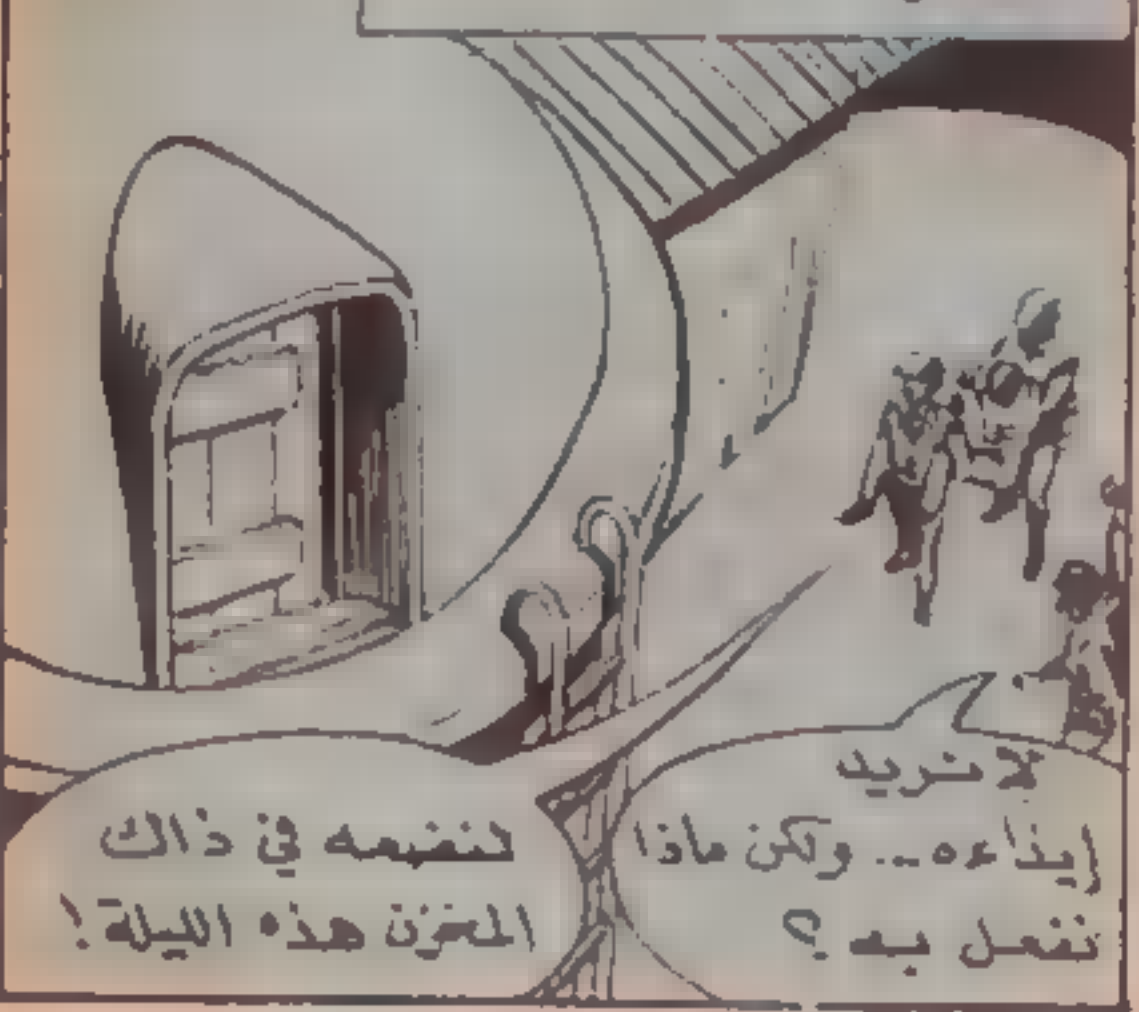 لا نريد
إيذاءه... ولكن ماذا
نفعل به؟
لنضعه في ذاك
المخزن هذه الليلة!